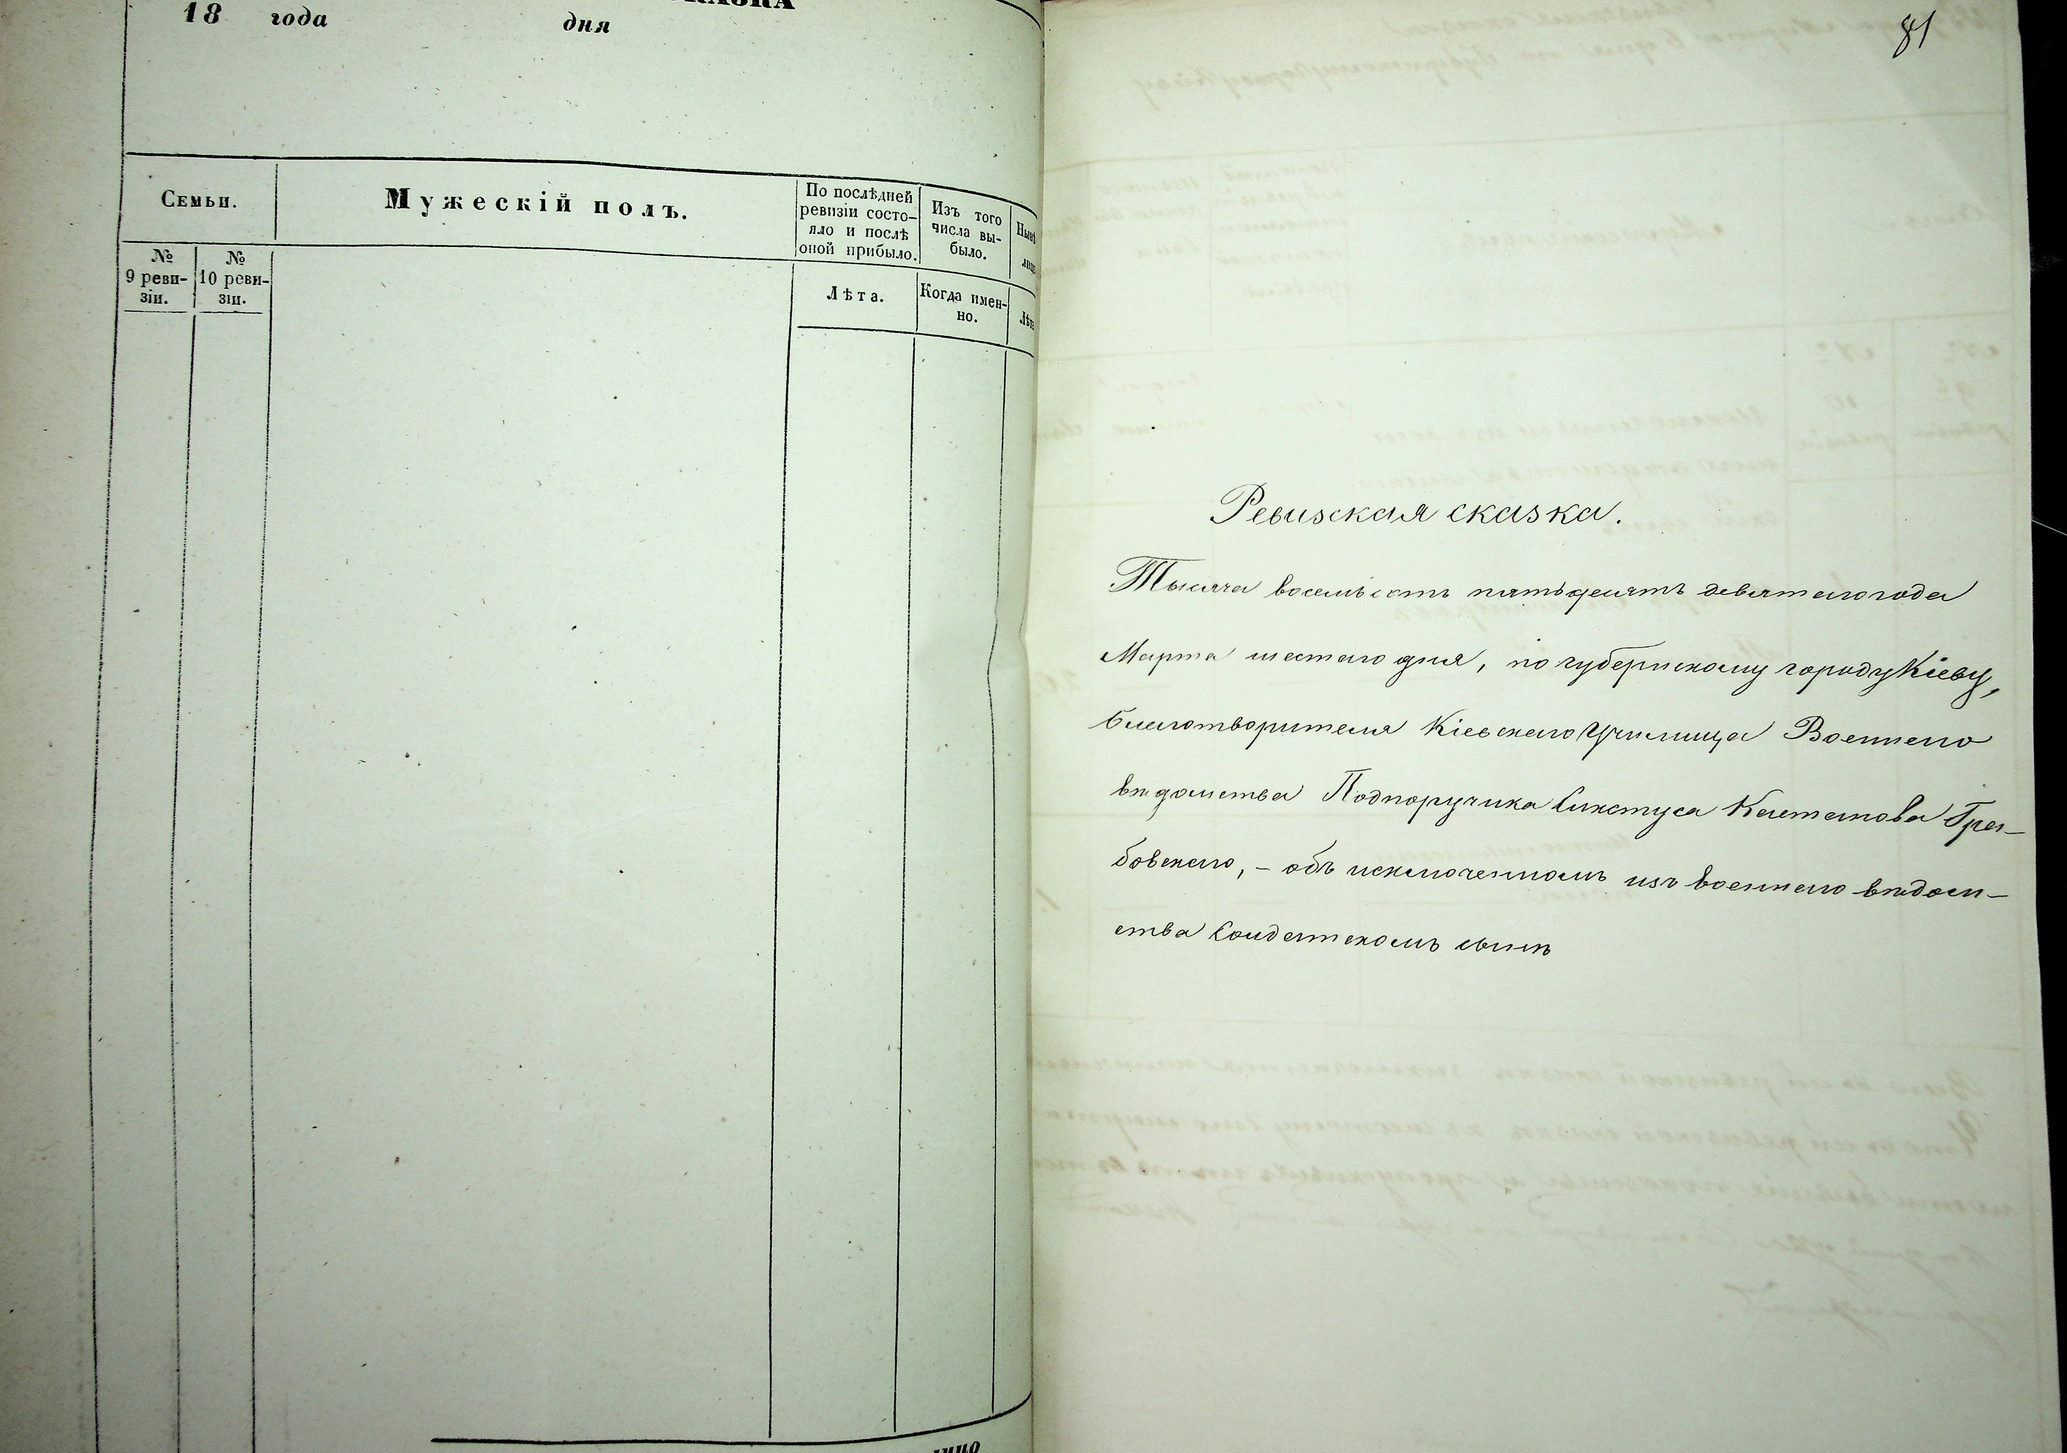 18 года дня
Семьи.
Мужескій полъ.
По послѣдней
ревизіи состо-
яло и послѣ
оной прибыло.
Изъ того
числа вы-
было.
№
9 реви-
зіи.
№
10 реви-
зіи.
Лѣта.
Когда имен-
но.
81
Ревизская сказка.
Тысяча восемьсотъ пятьдесятъ девятаго года
Марта шестаго дня, по губернскому городу Кіеву,
благотворителя Кіевскаго Училища Военнаго
вѣдомства Подпоручика Сикстуса Каетанова Гра-
бовскаго, - объ исключенномъ изъ военнаго вѣдом-
ства Солдатскомъ сынѣ